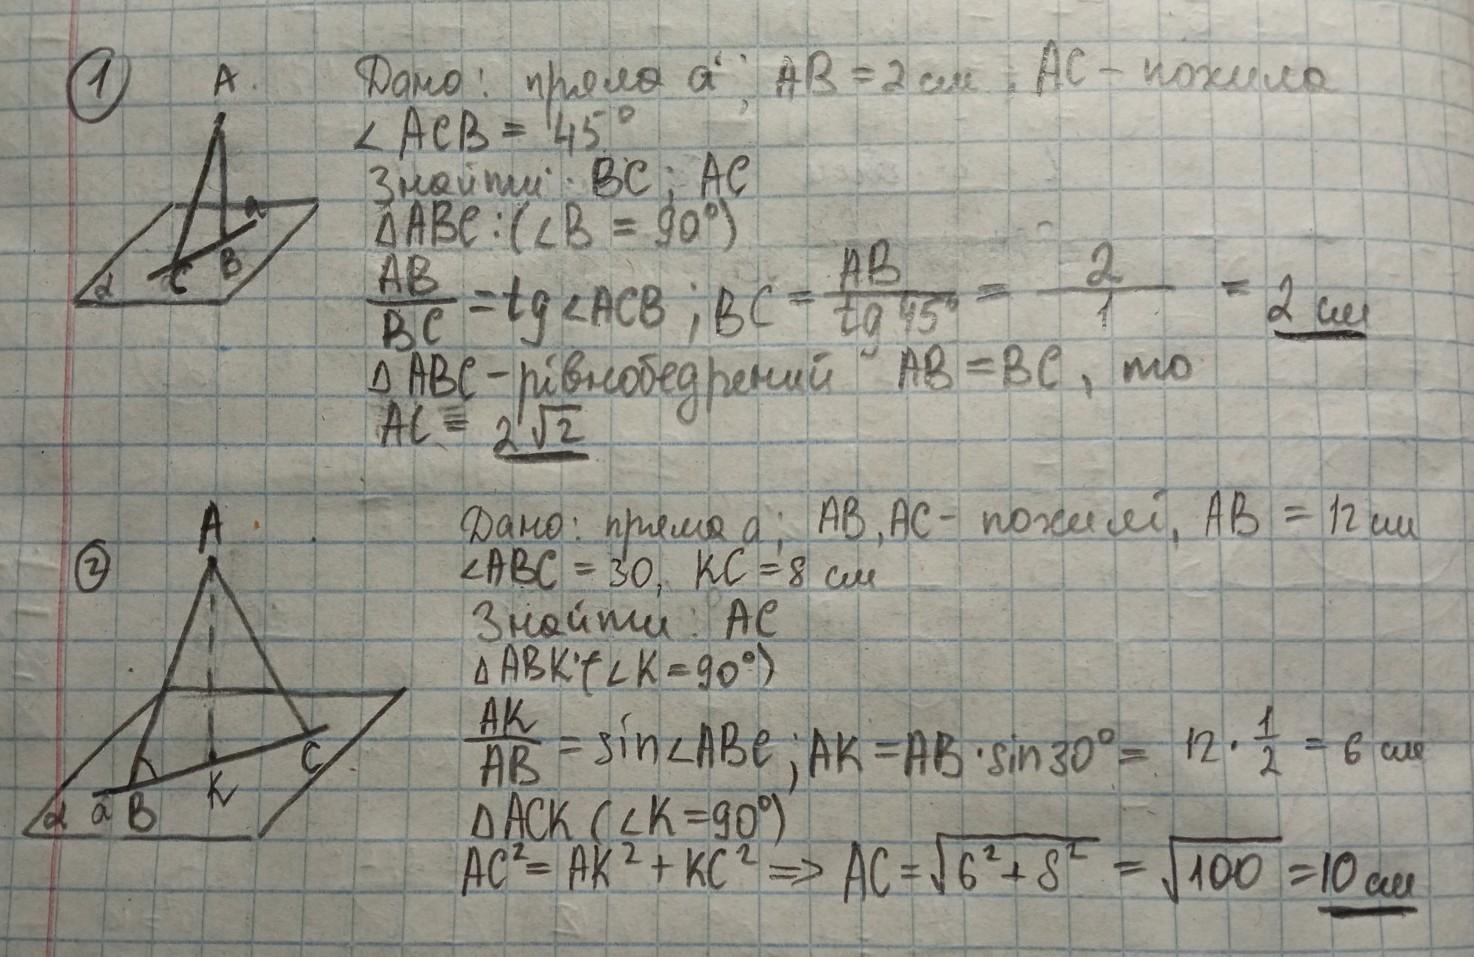 1 A. Дано: пряма a; AB = 2 см; AC - похила
∠ ACB = 45°
Знайти: BC; AC
△ ABC: (∠B = 90°)
AB/BC = tg ∠ACB; BC = AB/tg 45° = 2/1 = 2 см
△ ABC - рівнобедрений AB = BC, то
AC = 2√2
a
α C B
2 A Дано: пряма a; AB, AC - похилі, AB = 12 см
∠ABC = 30, KC = 8 см
Знайти: AC
△ ABK (∠K = 90°)
AK/AB = sin∠ABC; AK = AB · sin30° = 12 · 1/2 = 6 см
△ ACK (∠K = 90°)
AC² = AK² + KC² => AC = √6² + 8² = √100 = 10 см
α a B K C